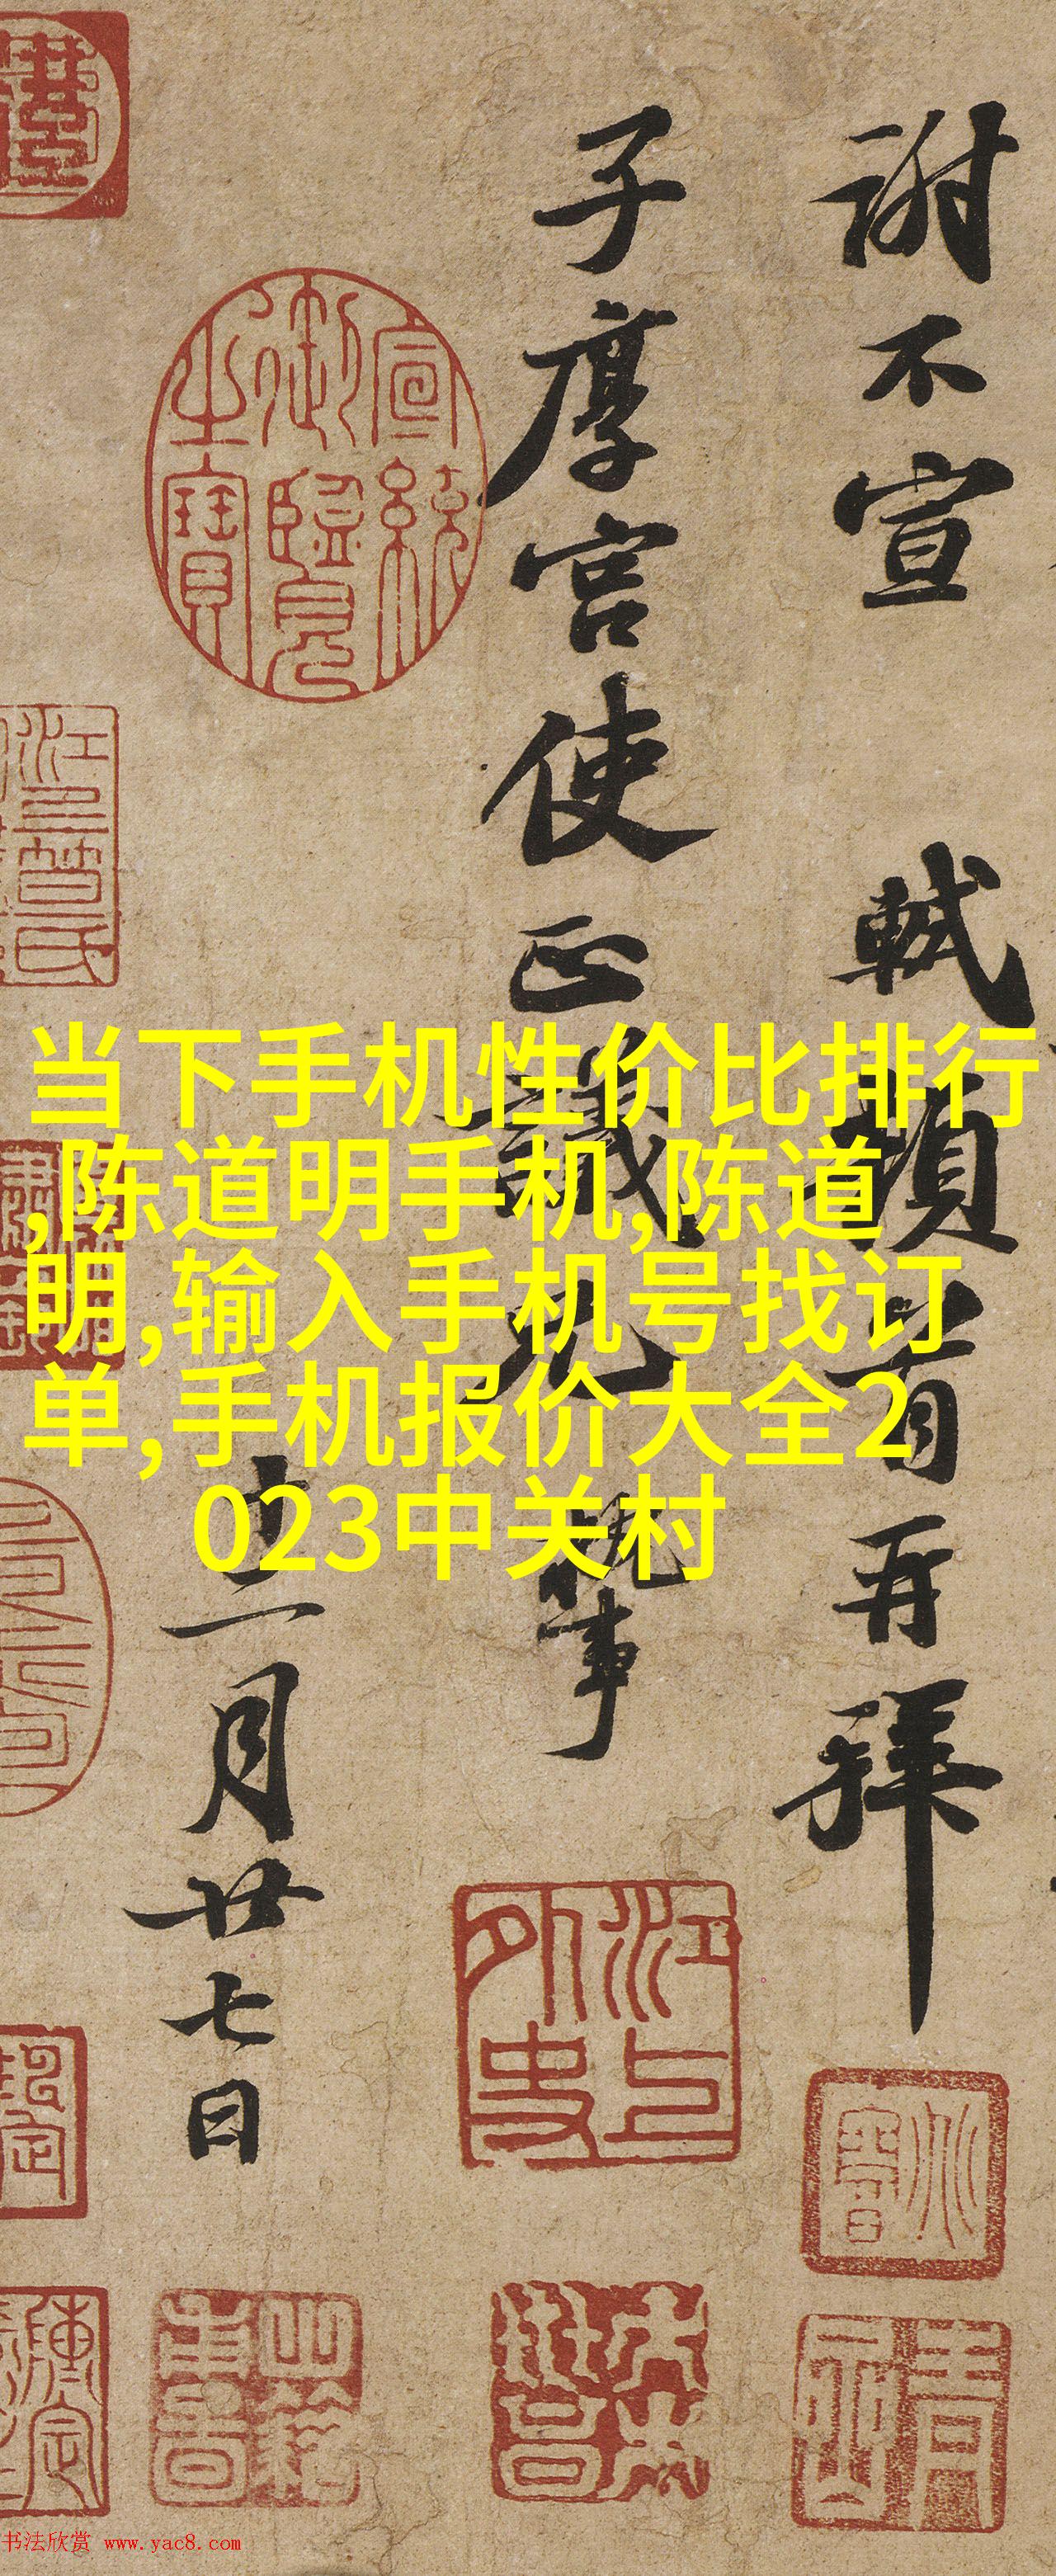 謝不宣 軾頓首再拜
子厚宫使正議兄執事
十一月廿七日
当下手机性价比排行
,陈道明手机,陈道
明,输入手机号找订
单,手机报价大全2
023中关村
宣統御覽之寶
江上外史
书法欣赏 www.yac8.com